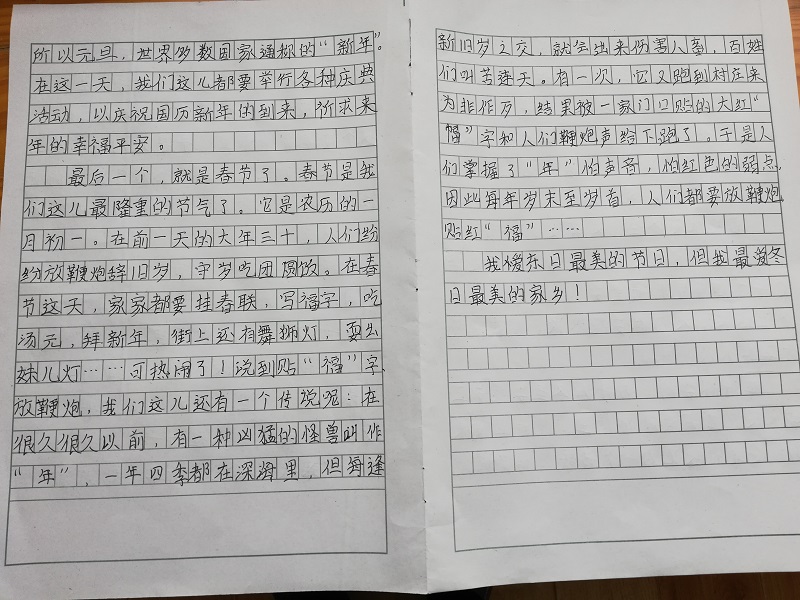 所以元旦，世界多数国家通称的“新年”。
在这一天，我们这儿都要举行各种庆典
活动，以庆祝国历新年的到来，祈求来
年的幸福平安。
最后一个，就是春节了。春节是我
们这儿最隆重的节气了。它是农历的一
月初一。在前一天的大年三十，人们纷
纷放鞭炮辞旧岁，守岁吃团圆饭。在春
节这天，家家都要挂春联，写福字，吃
汤元，拜新年，街上还有舞狮灯，耍幺
妹儿灯……可热闹了！说到贴“福”字
放鞭炮，我们这儿还有一个传说呢：在
很久很久以前，有一种凶猛的怪兽叫作
“年”，一年四季都在深海里，但每逢
新旧岁之交，就会出来伤害人畜，百姓
们叫苦连天。有一次，它又跑到村庄来
为非作歹，结果被一家门口贴的大红“
福”字和人们鞭炮声给下跑了。于是人
们掌握了“年”怕声音，怕红色的弱点，
因此每年岁末至岁首，人们都要放鞭炮，
贴红“福”……
我爱冬日最美的节日，但我最爱冬
日最美的家乡！